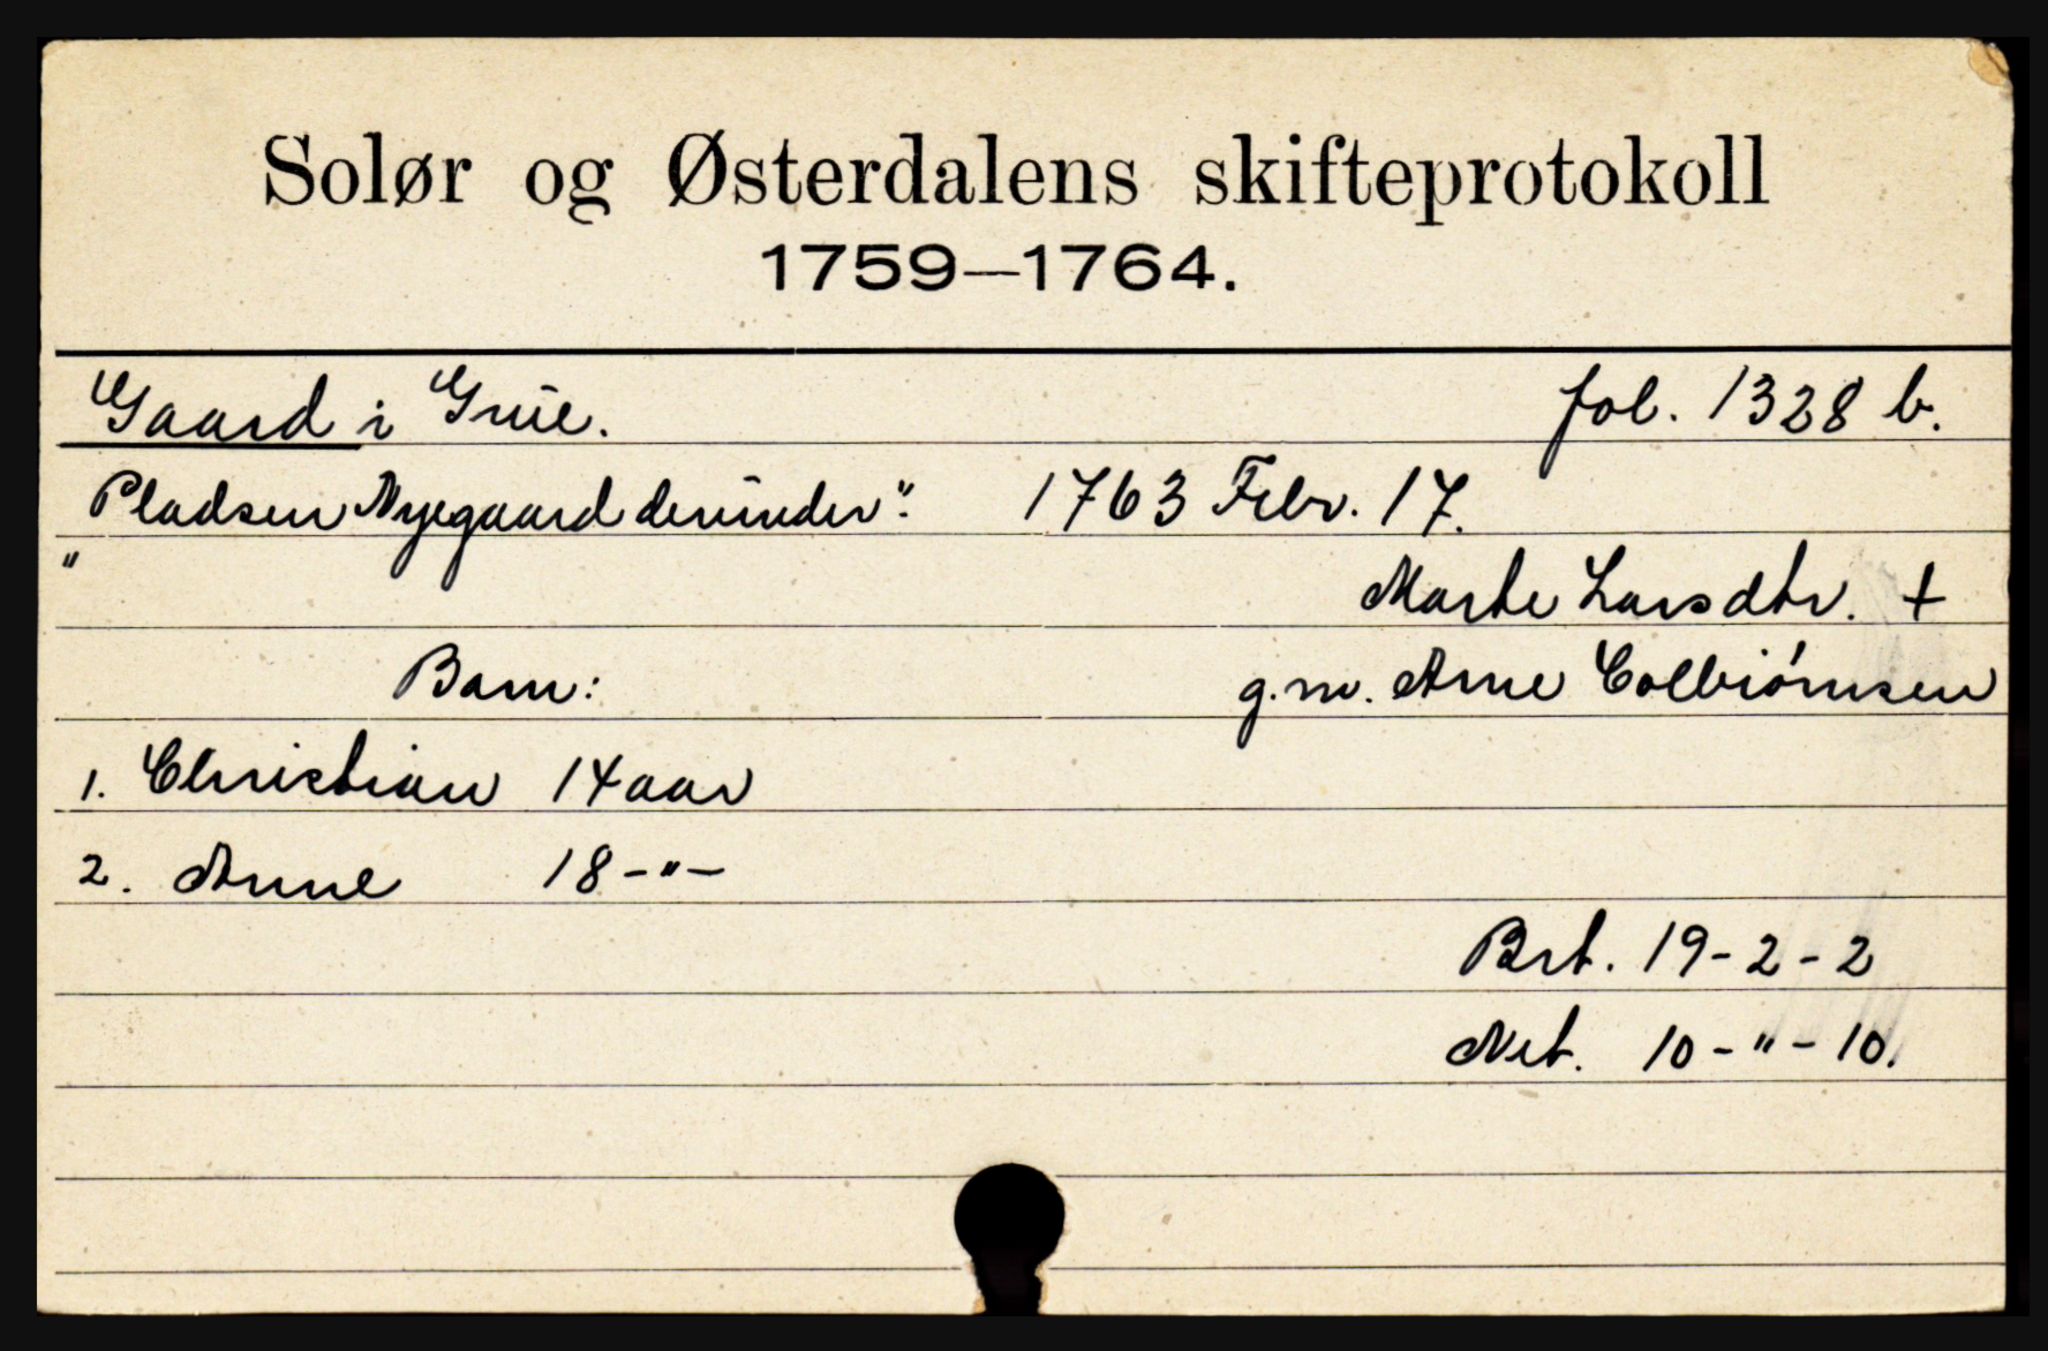 Solør og Østerdalens skifteprotokoll
1759—1764.
Gaard i Grue. fol. 1328 b.
"Pladsen Nyegaard derunder". 1763 Febr. 17.
Marte Larsdtr. +
Barn: g.m. Arne Colbiørnsen
1. Christian 14 aar
2. Anne 18 -"-
Brt. 19-2-2
Net. 10-"-10.